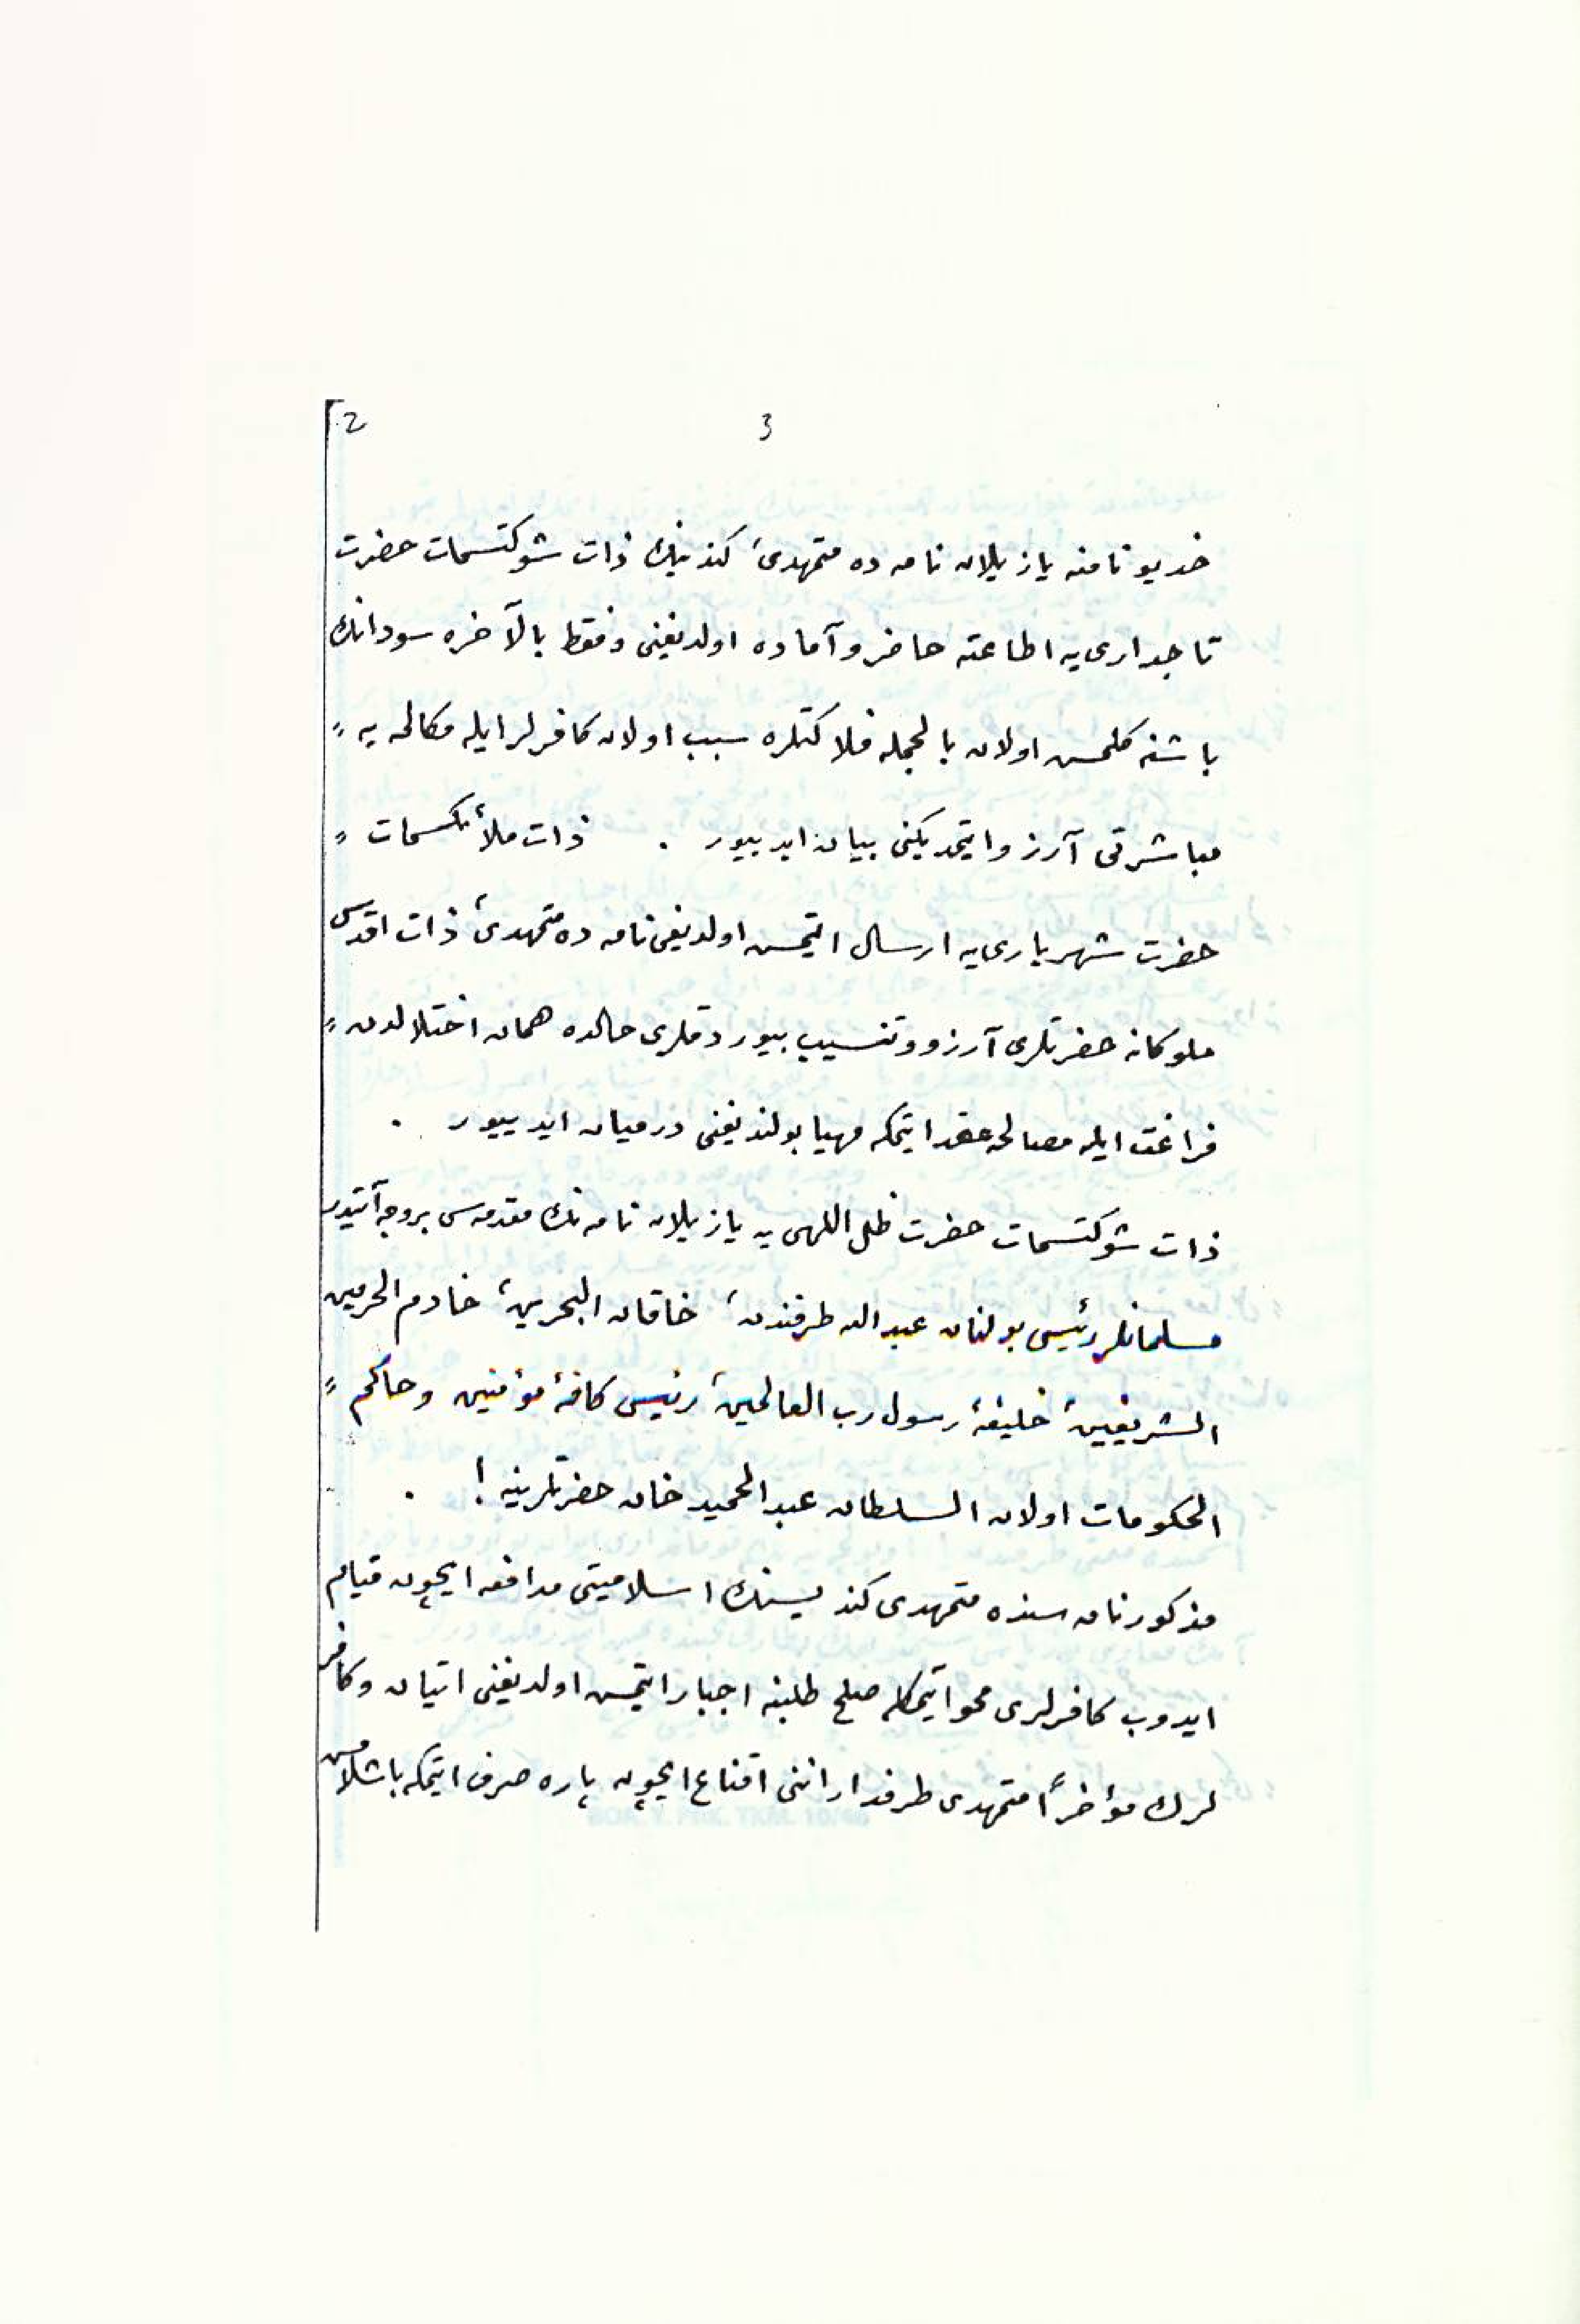 2
3
خديو نامنه يازيلان نامه ده متمهدی، كندينك ذات شوكتسمات حضرت
تاجداری يه اطاعته حاضر و آماده اولديغنی وفقط بالآخره سودانك
باشنه كلمش اولان بالجمله فلاكتلره سبب اولان كافرلر ايله مكالمه يه
مباشرتی آرزو ايتمديكنی بيان ايدييور . ذات ملائكسمات
حضرت شهرياری يه ارسال ايتمش اولديغی نامه ده متمهدی، ذات اقدس
ملوكانه حضرتلری آرزو و تنسيب بيوردقلری حالده همان اختلالدن
فراغت ايله مصالحه عقد ايتمكه مهيا بولنديغنی درميان ايدييور .
ذات شوكتسمات حضرت ظل اللهی يه يازيلان نامه نك مقدمه سی بروجه آتيدر
مسلمانلر رئيسی بولنان عبدالله طرفندن، خاقان البحرين، خادم الحرمين
الشريفين، خليفۀ رسول رب العالمين، رئيس كافۀ مؤمنين و حاكم
الحكومات اولان السلطان عبدالحميد خان حضرتلرينه ! .
مذكور نامه سنده متمهدی كنديسنك اسلاميتی مدافعه ايچون قيام
ايدوب كافرلری محو ايتمكله صلح طلبنه اجبار ايتمش اولديغنی اتيان و كافر
لرك مؤخراً متمهدی طرفدارانی اقناع ايچون پاره صرف ايتمكه باشلامش